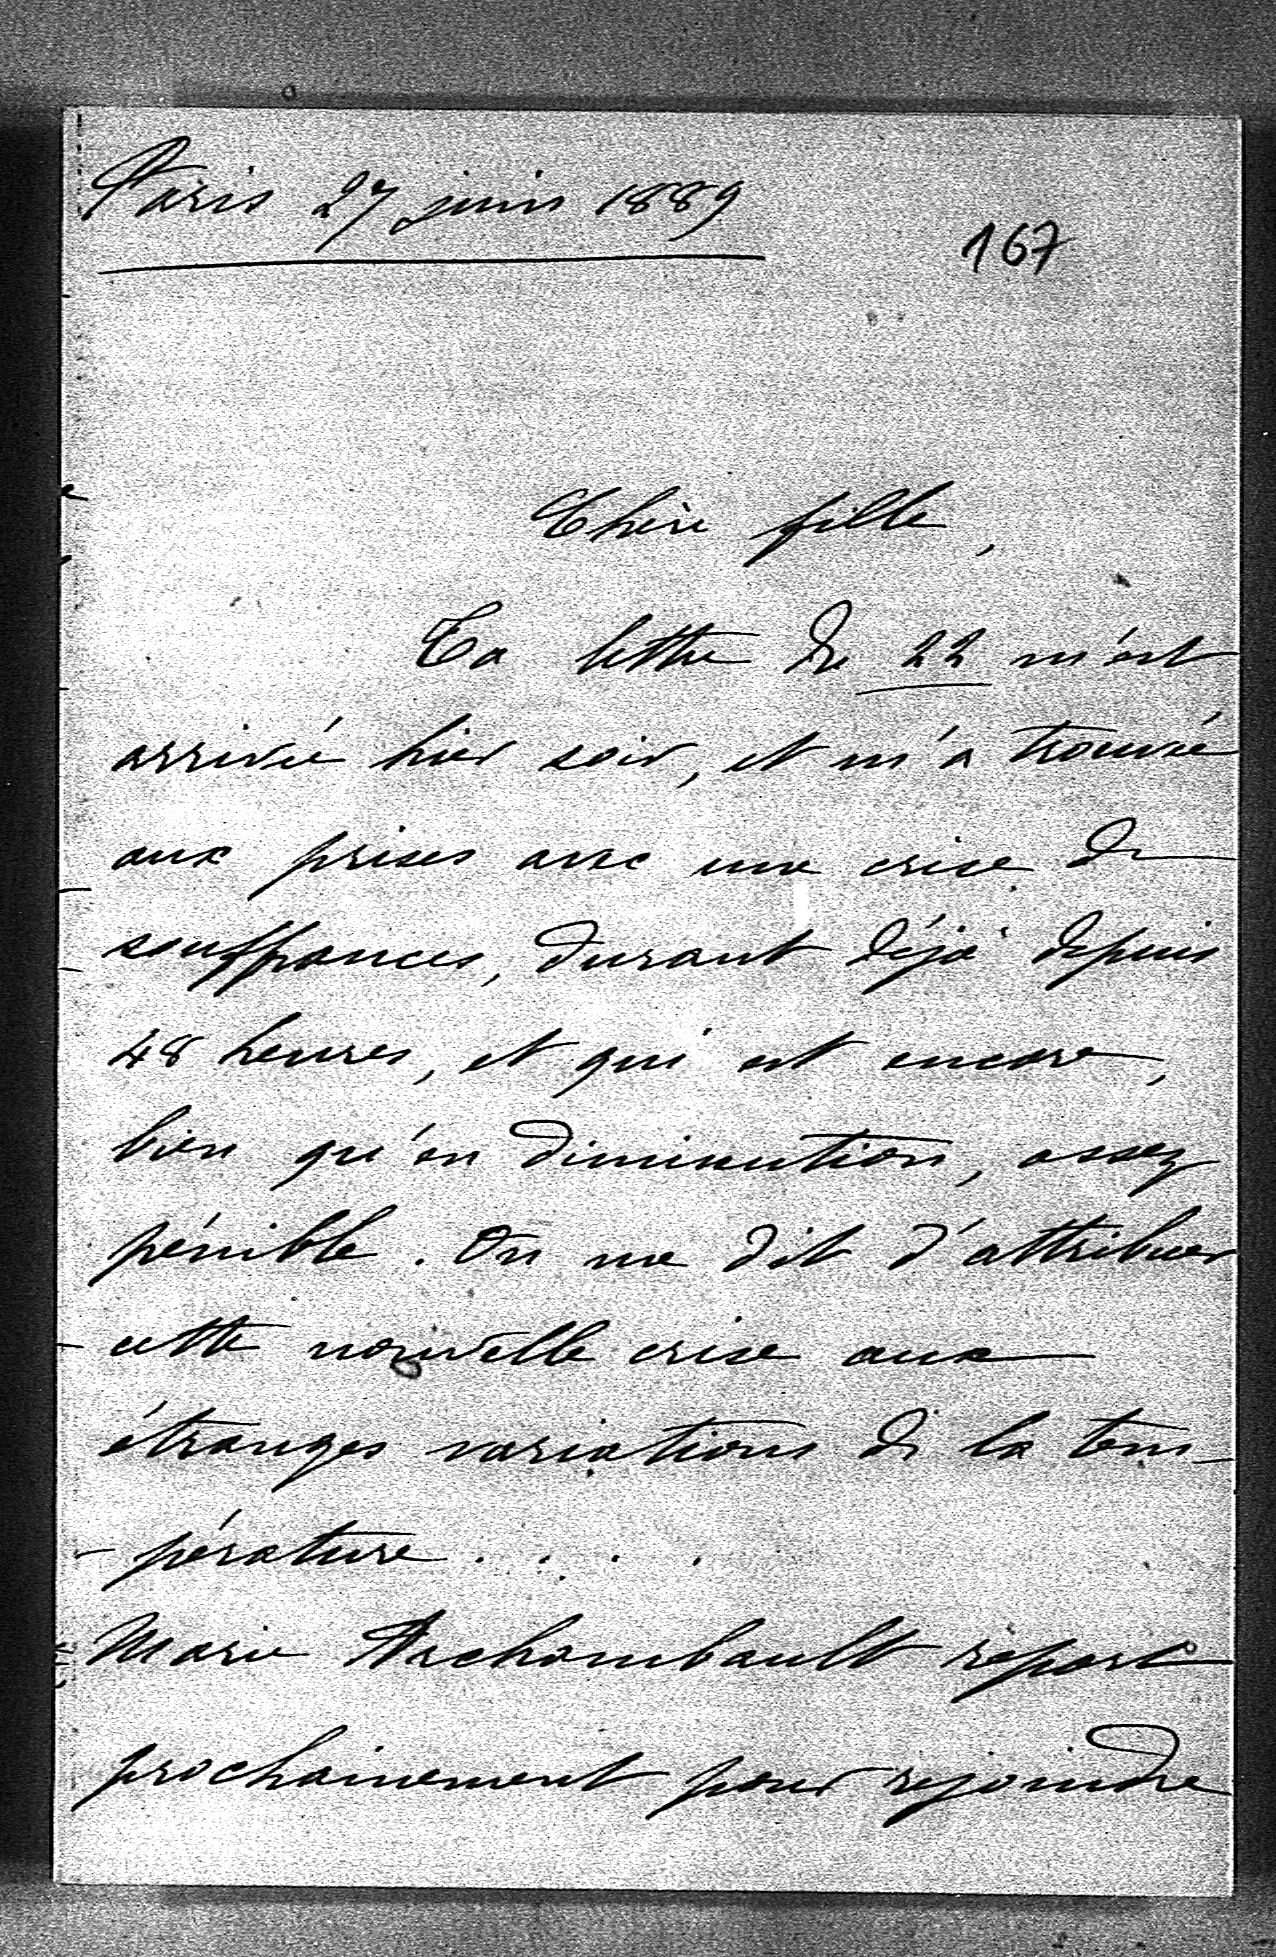 Paris 27 juin 1889
167
Chère fille,
Ta lettre du 22 m'est
arrivée hier soir, et m'a trouvée
aux prises avec une crise de
souffrances, durant déjà depuis
48 heures, et qui est encore,
bien qu'en diminution, assez
pénible. On me dit d'attribuer
cette nouvelle crise aux
étranges variations de la tem-
-pérature....
Marie Archambault repart
prochainement pour rejoindre